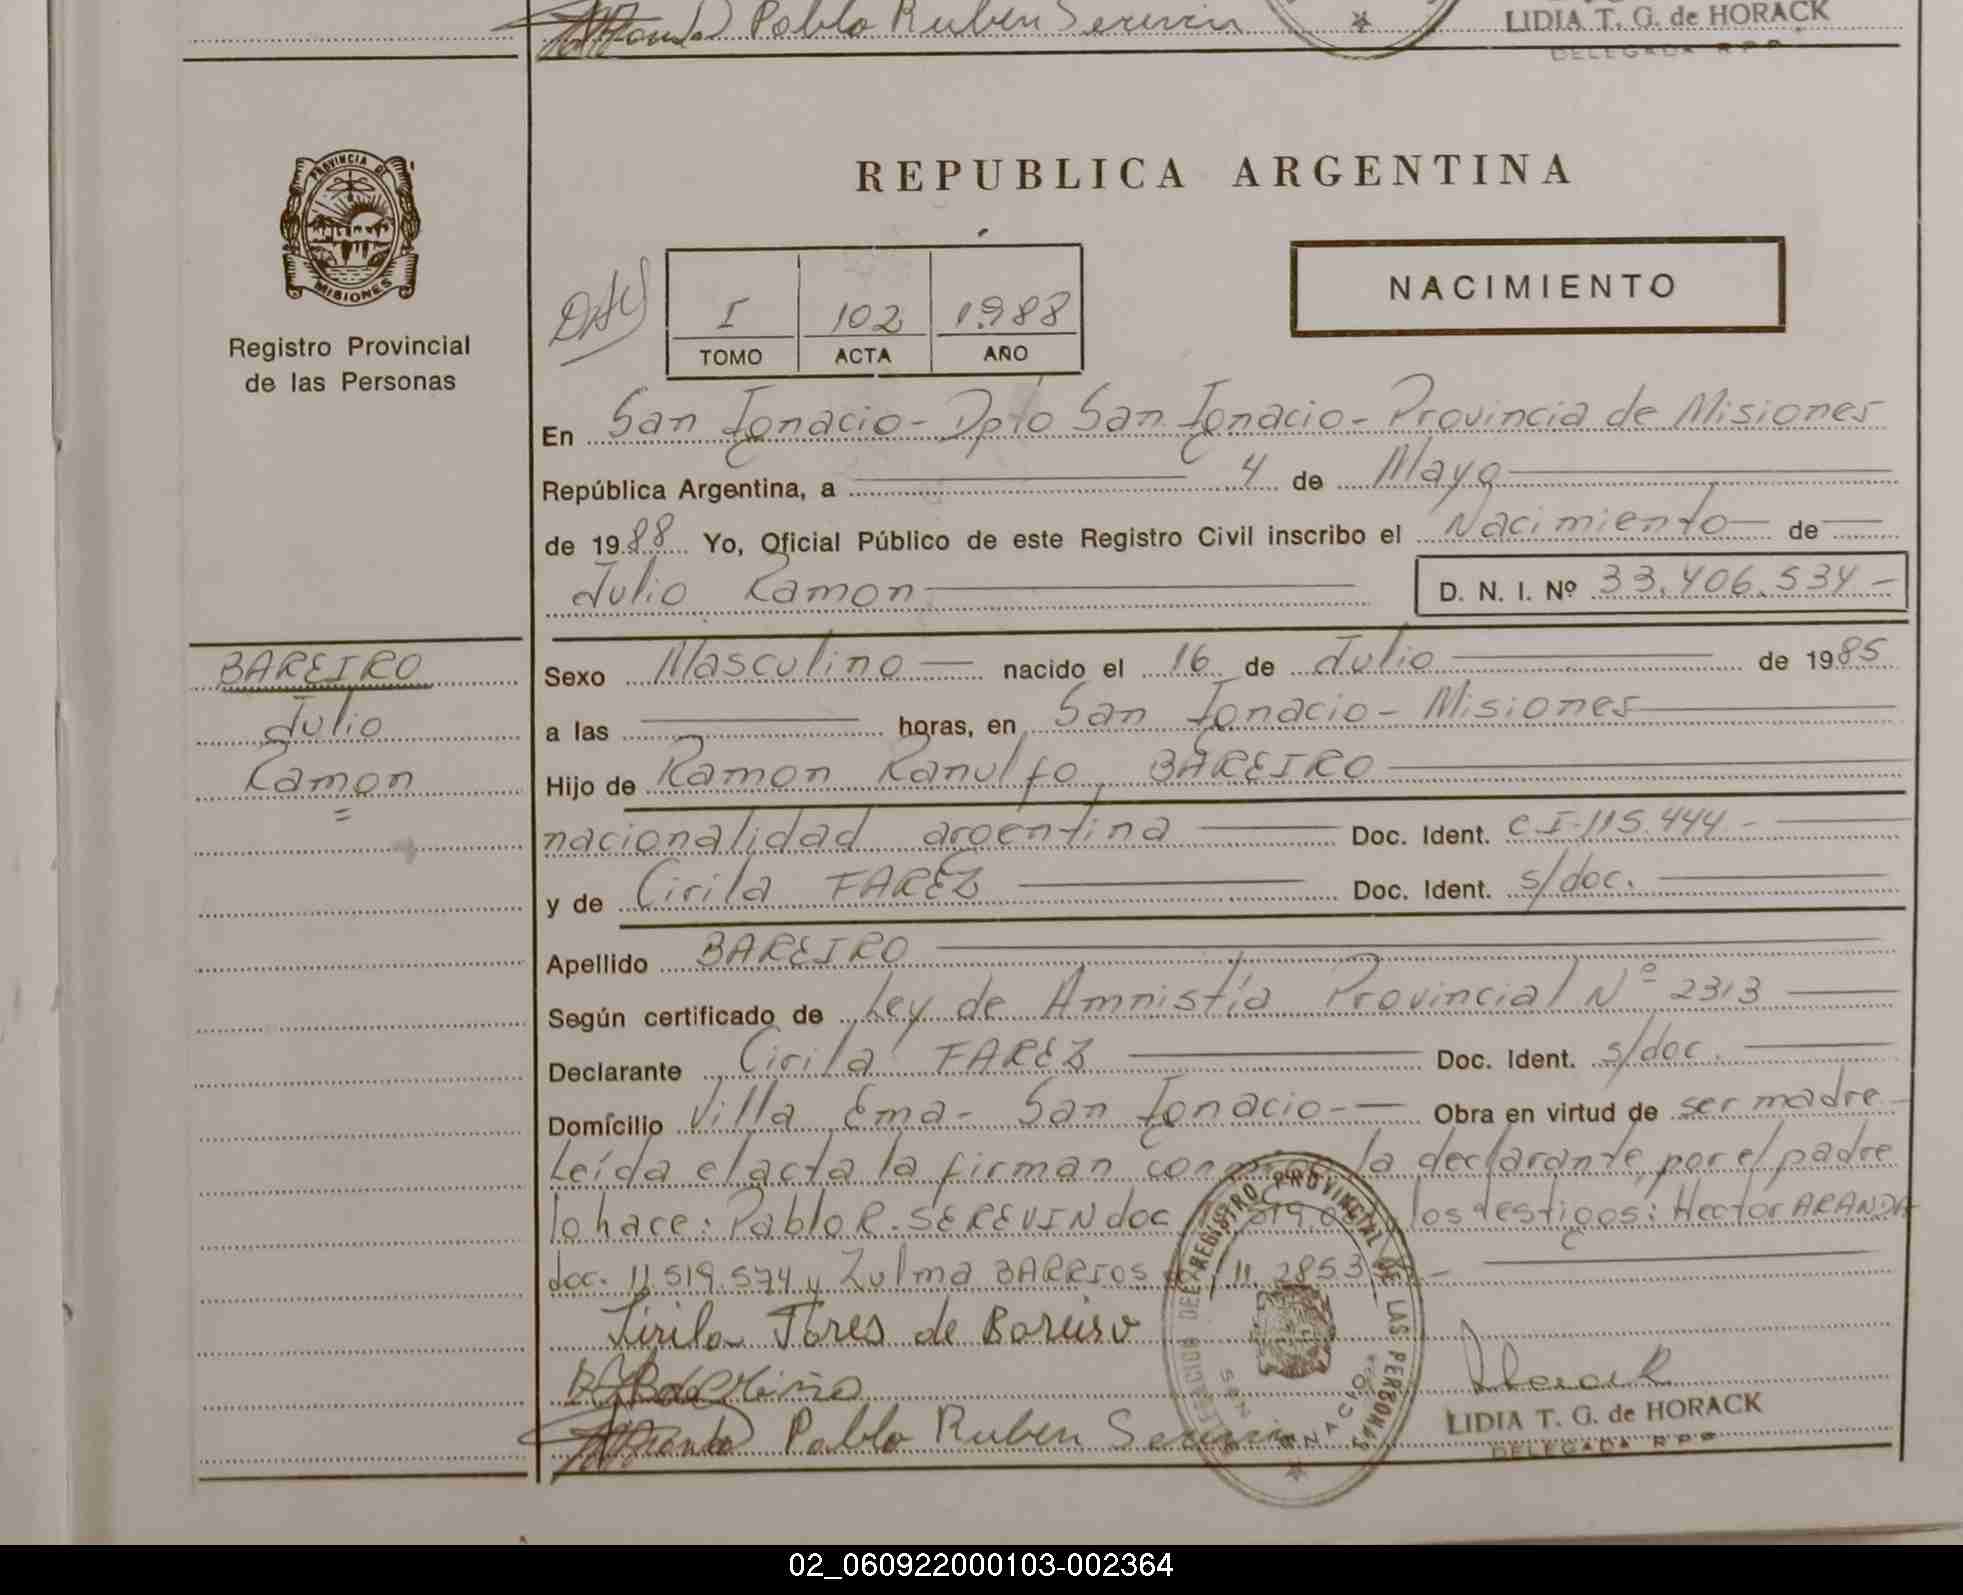 Pablo Ruben
LIDIA T. G. de HORACK
DELEGADA R P P
PROVINCIA DE
MISIONES
Registro Provincial
de las Personas
REPUBLICA ARGENTINA
NACIMIENTO
I 102 1988
TOMO ACTA AÑO
En San Ignacio - Dpto San Ignacio - Provincia de Misiones
República Argentina, a 4 de Mayo
de 1988 Yo, Oficial Público de este Registro Civil inscribo el Nacimiento de
Julio Ramon D. N. I. Nº 33.406.534 -
BAREIRO
Julio
Ramon
Sexo Masculino nacido el 16 de Julio de 1985
a las horas, en San Ignacio - Misiones
Hijo de Ramon Ranulfo BAREIRO
nacionalidad argentina Doc. Ident. C.I. 115.444 -
y de Cirila FAREZ Doc. Ident. s/doc.
Apellido BAREIRO
Según certificado de Ley de Amnistía Provincial Nº 2313
Declarante Cirila FAREZ Doc. Ident. s/doc.
Domicilio Villa Ema - San Ignacio - Obra en virtud de ser madre
Leída el acta la firman la declarante, por el padre
lo hace: Pablo R. SEREVIN doc los testigos: Hector ARANDA
doc. 11.519.574 y Zulma BARRIOS
Cirila Fares de Bareiro
Pablo Ruben
REGISTRO PROVINCIAL DE LAS PERSONAS
SAN IGNACIO
LIDIA T. G. de HORACK
DELEGADA R P P
02_060922000103-002364